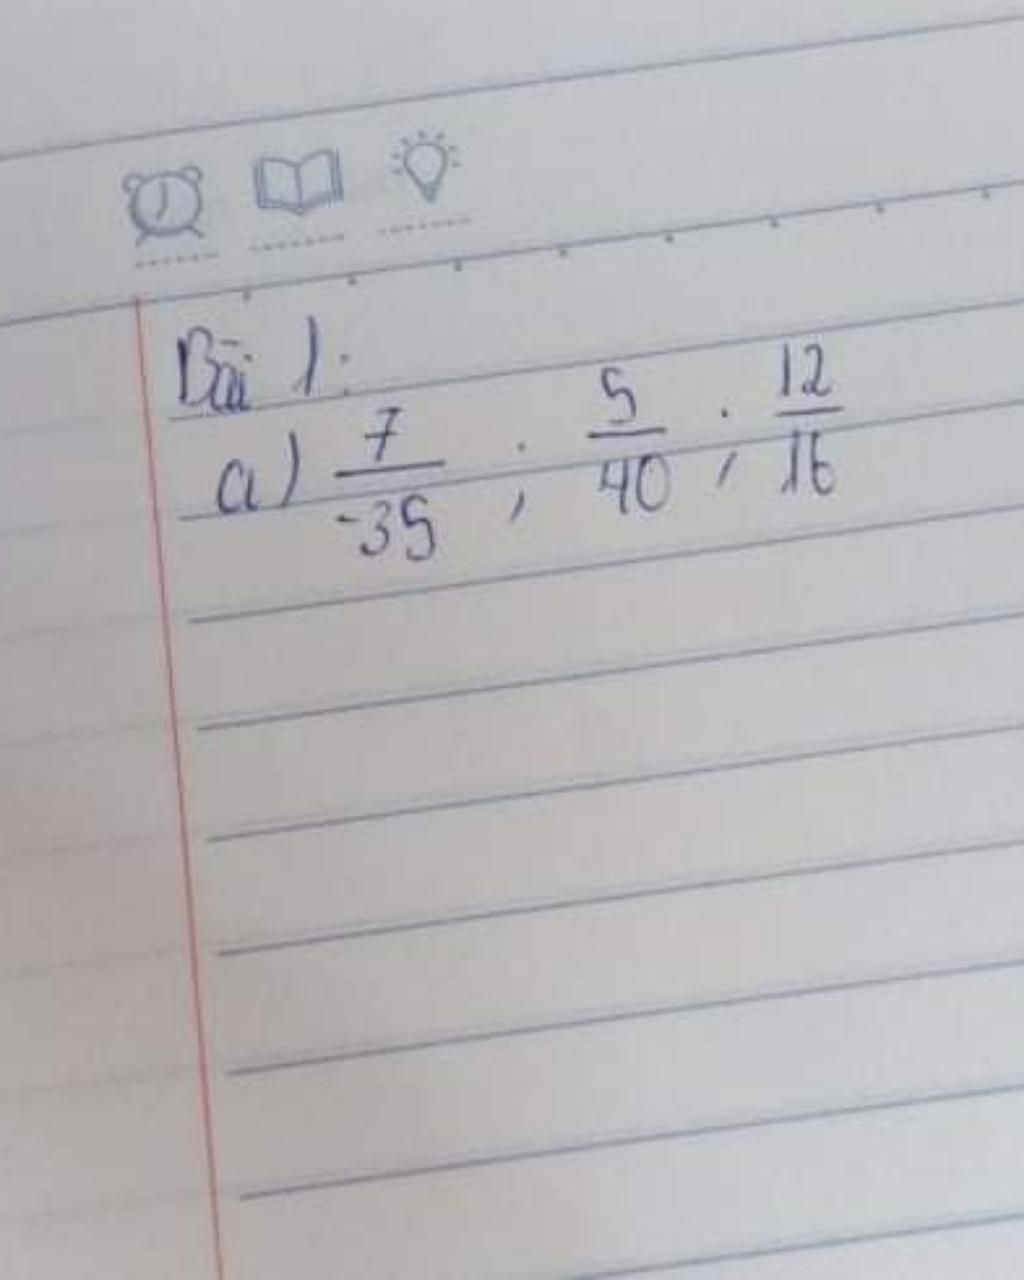 Bài 1:
a) 7/-35 ; 5/40 ; 12/16